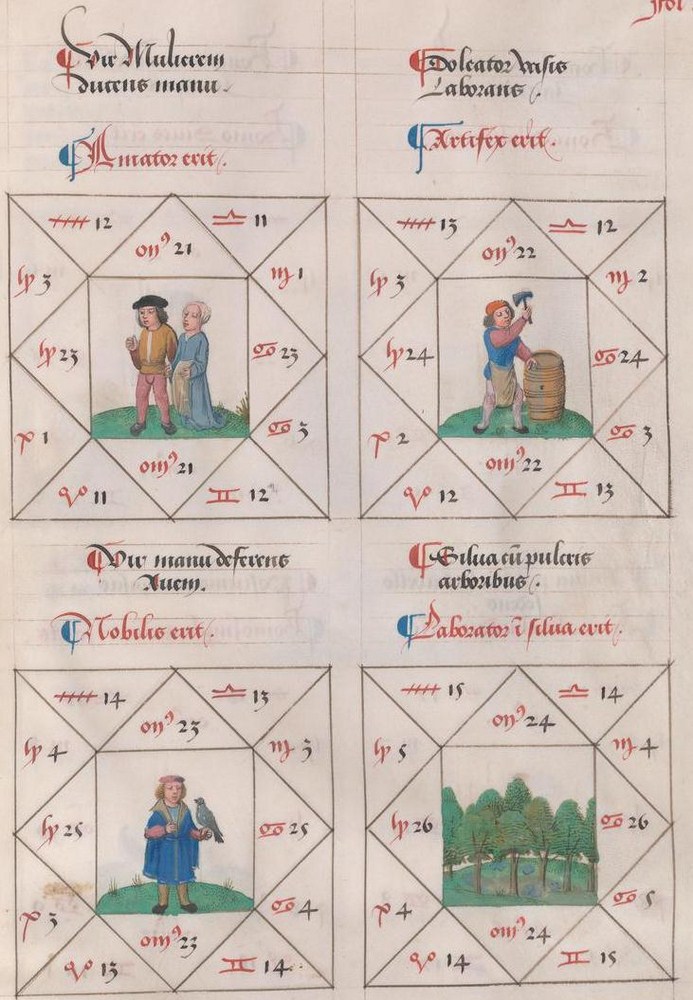 fol
Vir Mulierem
ducens manu.
Amator erit.
Doleator vasis
Laborans.
Artifex erit.
12
21
11
3
1
23
23
1
3
21
11
♊ 12
13
22
♎ 12
3
2
24
24
2
3
22
12
♊ 13
Vir manu deferens
Avem.
Nobilis erit.
Silva cũ pulcris
arboribus.
Laborator ĩ silva erit.
14
23
♎ 13
4
3
25
25
3
4
23
13
♊ 14
15
24
♎ 14
5
4
26
26
4
5
24
14
♊ 15